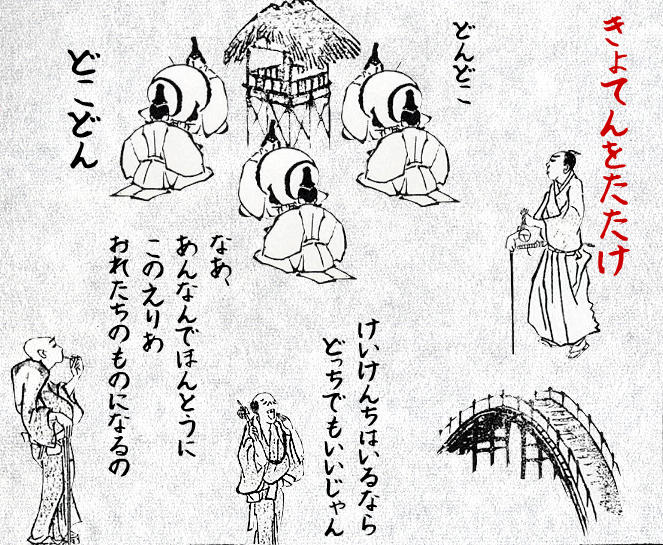 きょてんをたたけ
どんどこ
どこどん
けいけんちはいるなら
どっちでもいいじゃん
なあ、
あんなんでほんとうに
このえりあ
おれたちのものになるの